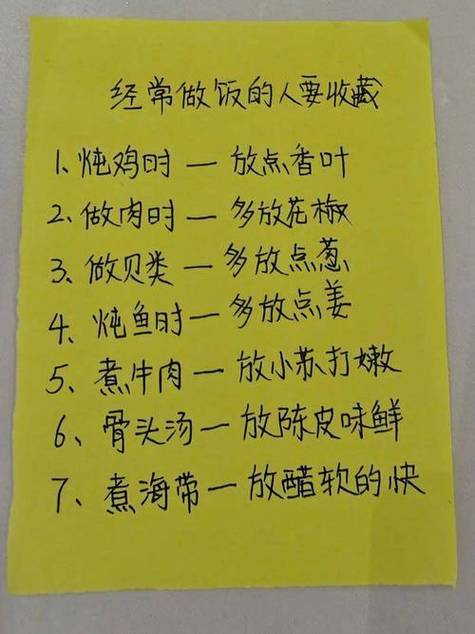 经常做饭的人要收藏
1、炖鸡时一放点香叶
2、做肉时一多放花椒
3、做贝类一多放点葱
4、炖鱼时一多放点姜
5、煮牛肉一放小苏打嫩
6、骨头汤一放陈皮味鲜
7、煮海带一放醋软的快